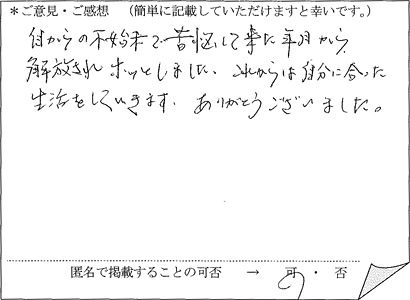 ＊ご意見・ご感想　（簡単に記載していただけますと幸いです。）
自からの不始末で苦悩して来た年月から
解放されホッとしました。これからは自分に合った
生活をしていきます。ありがとうございました。
匿名で掲載することの可否　→　可・否